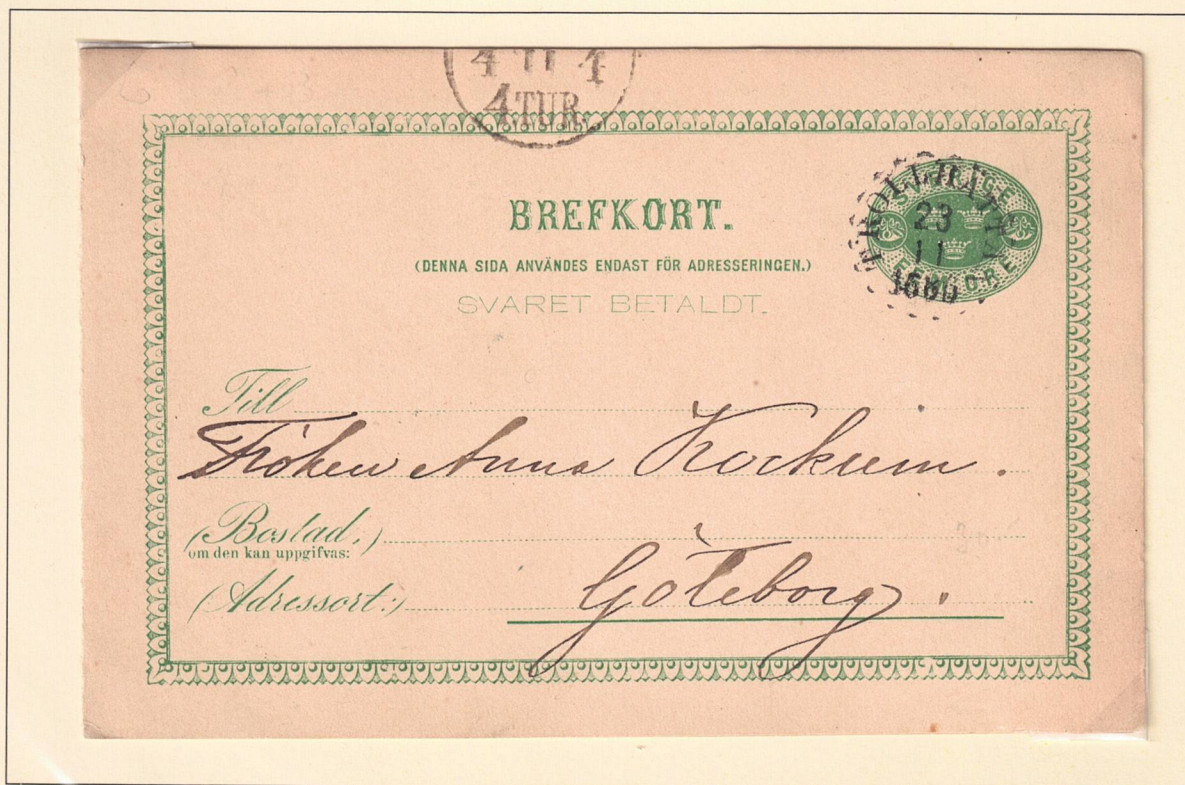 4 11 1
4 TUR.
BREFKORT.
(DENNA SIDA ANVÄNDES ENDAST FÖR ADRESSERINGEN.)
SVARET BETALDT.
SVERIGE
FEM ÖRE
TROLLHÄTTAN
23
11
Till
Fröken Anna Kockum.
(Bostad;)
om den kan uppgifvas:
(Adressort:)
Göteborg.